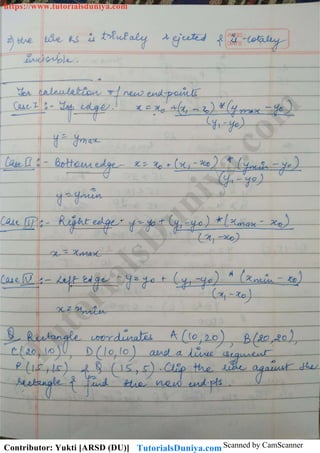 https://www.tutorialsduniya.com
→) the line PS is trivially rejected & is totally
invisible.
For calculation of new end points
Case I :- Top edge : x = x0 + (x1 - x0) * (ymax - y0)
(y1 - y0)
y = ymax
Case II :- Bottom edge - x = x0 + (x1 - x0) * (ymin - y0)
(y1 - y0)
y = ymin
Case III :- Right edge + y = y0 + (y1 - y0) * (xmax - x0)
(x1 - x0)
x = xmax
Case IV :- Left Edge - y = y0 + (y1 - y0) * (xmin - x0)
(x1 - x0)
x = xmin
Q Rectangle coordinates A(10,20), B(20,20),
C(20,10), D(10,10) and a line segment
P(15,15) & Q(15,5). Clip the line against the
rectangle & find the new end pts.
Contributor: Yukti [ARSD (DU)] TutorialsDuniya.com Scanned by CamScanner